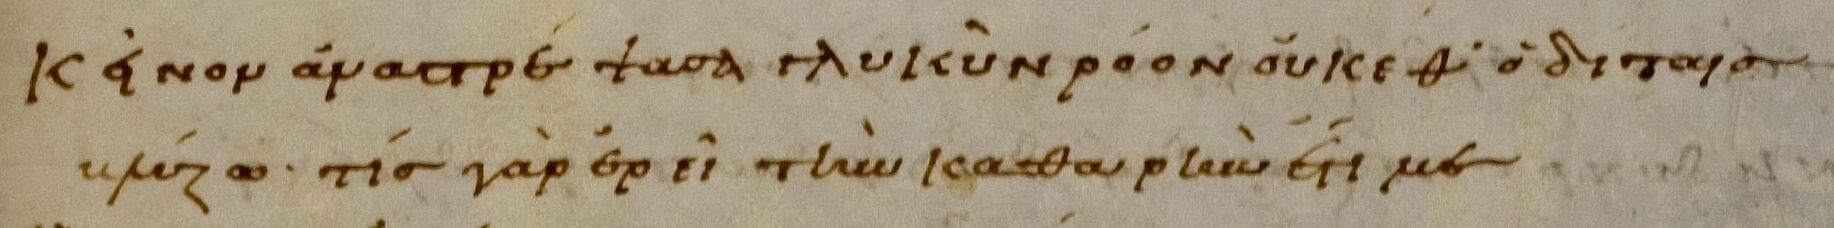 κεῖνον ἀναστρέψασα γλυκὺν ρόον οὐκέθ' ὁδίταισ
βλύζω· τίσ γὰρ ἐρεῖ τὴν καθαρὴν ἔτι με